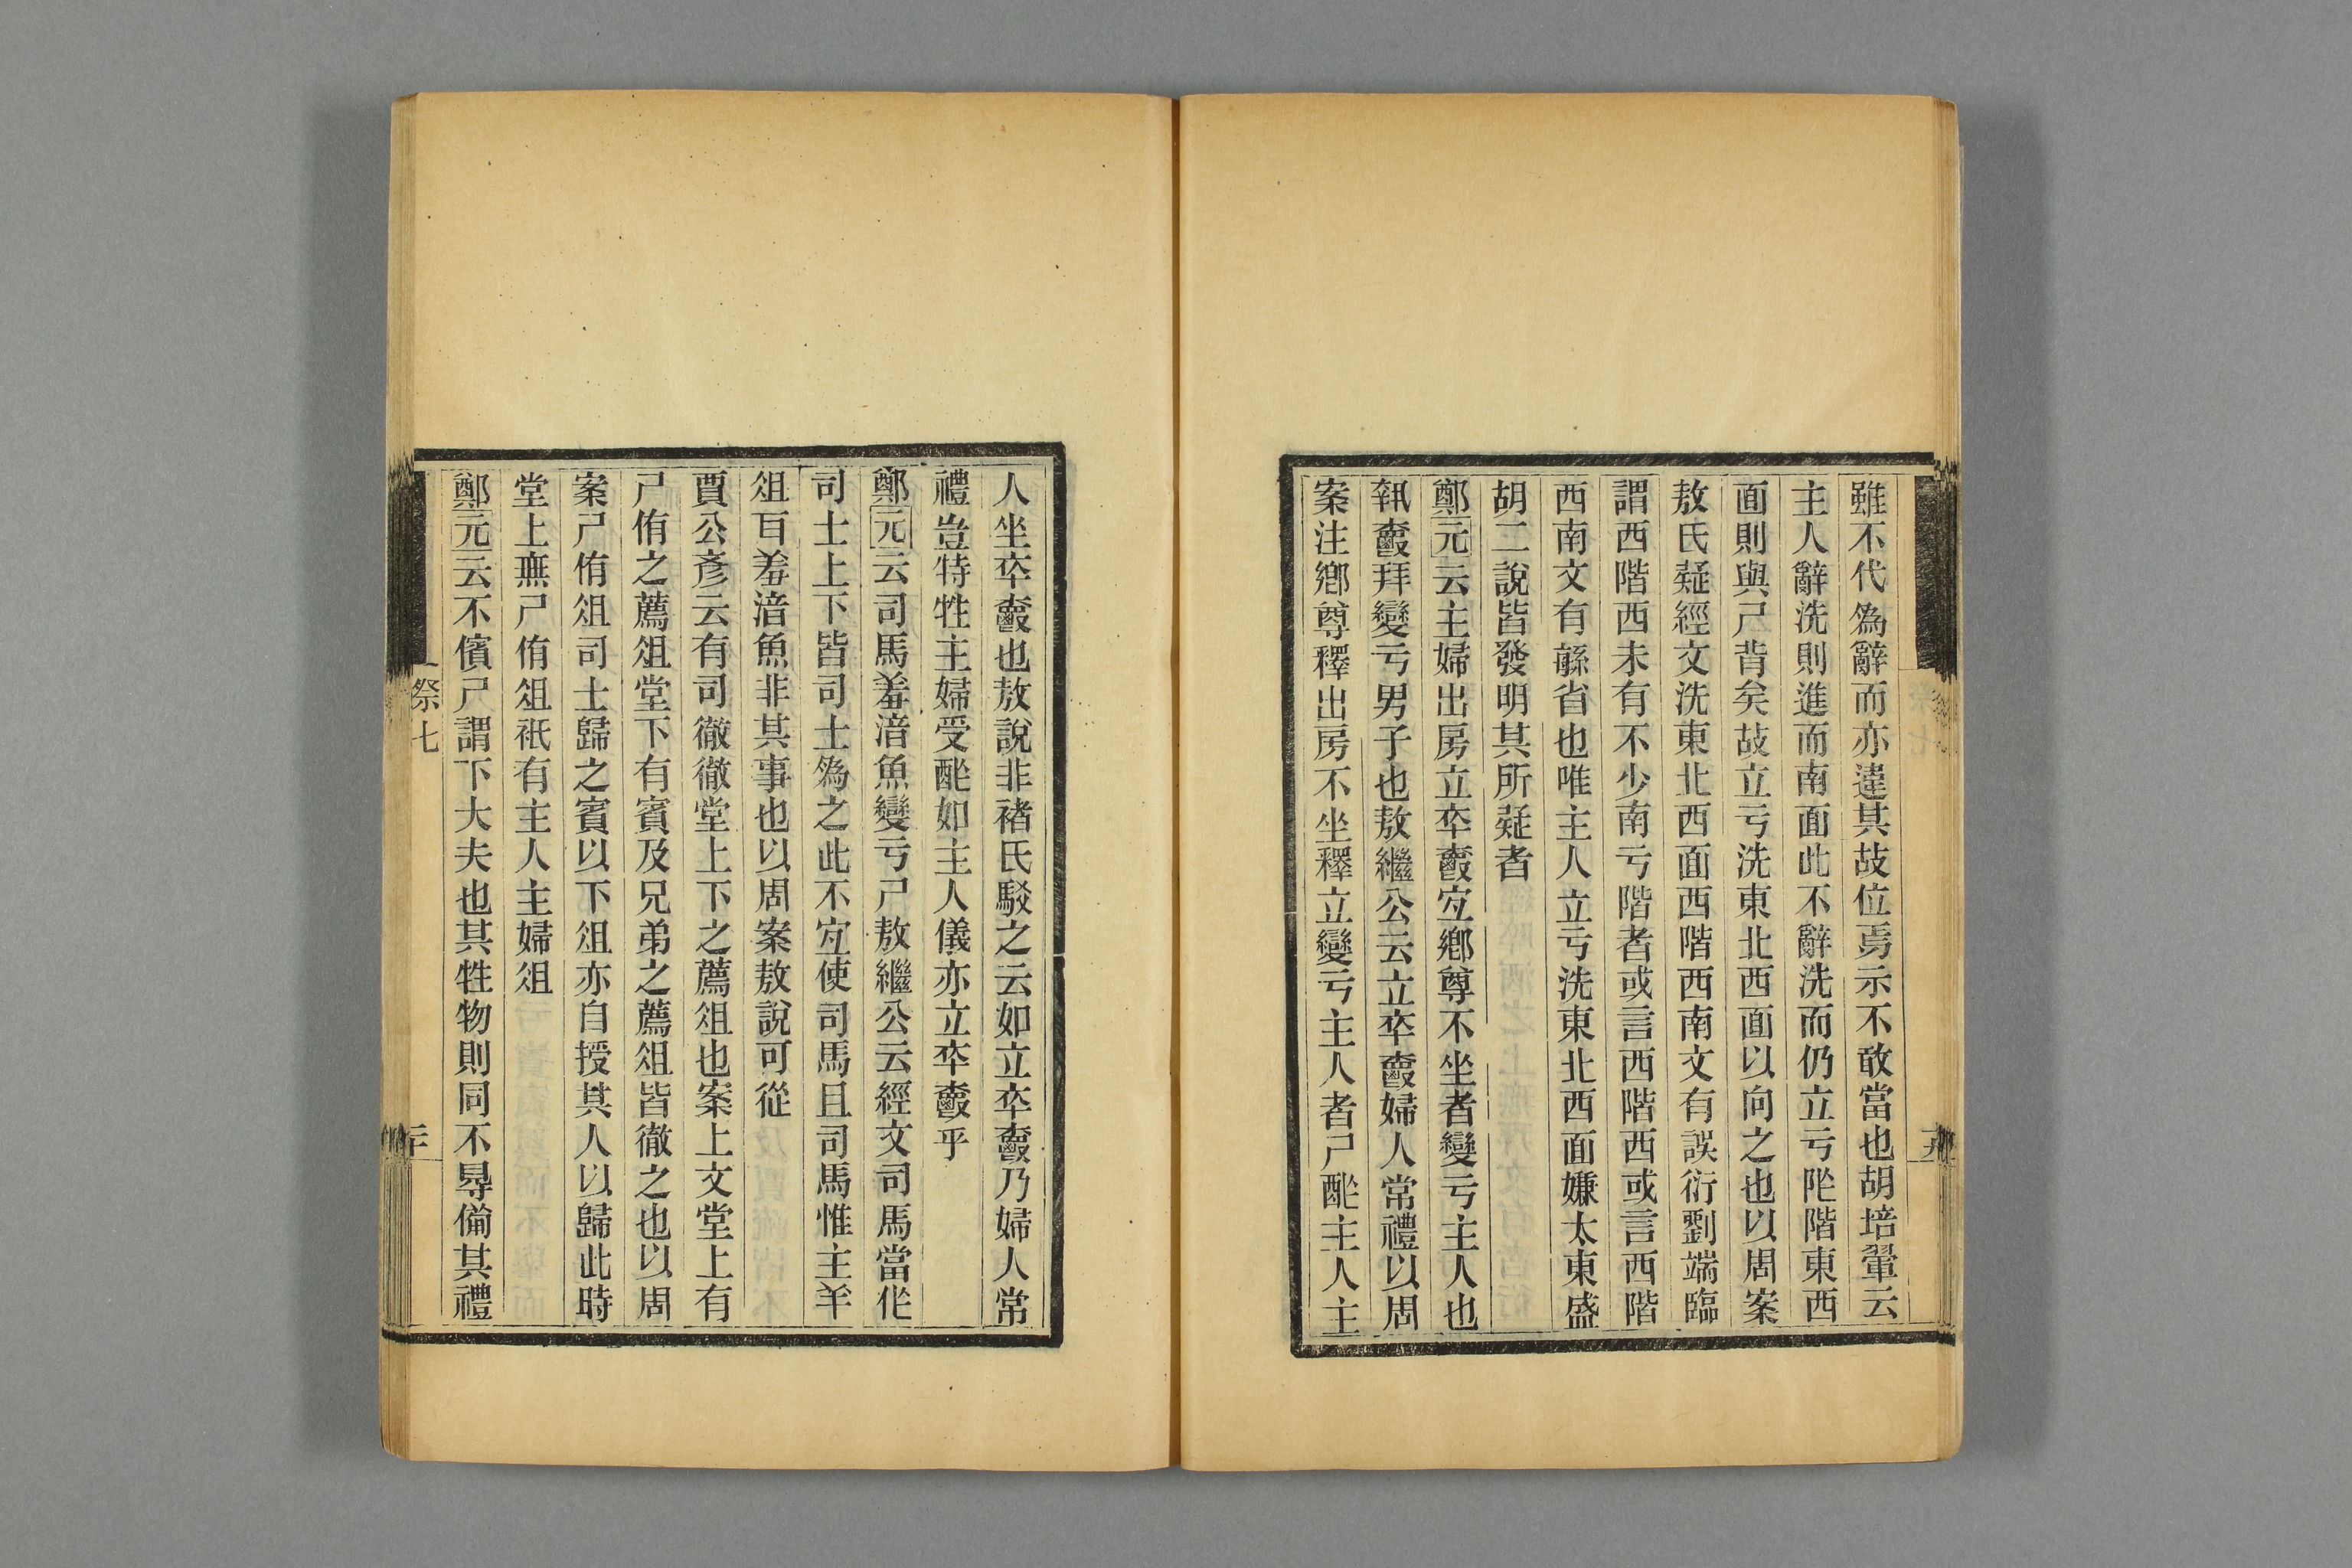 雖不代爲辭而亦違其故位焉示不敢當也胡培翬云
主人辭洗則進而南面此不辭洗而仍立亏阼階東西
面則與尸背矣故立亏洗東北西面以向之也以周案
敖氏疑經文洗東北西面西階西南文有誤衍劉端臨
謂西階西未有不少南亏階者或言西階西或言西階
西南文有緐省也唯主人立亏洗東北西面嫌太東盛
胡二說皆發明其所疑者
鄭元云主婦出房立卒爵宐鄉尊不坐者變亏主人也
執爵拜變亏男子也敖繼公云立卒爵婦人常禮以周
案注鄉尊釋出房不坐釋立變亏主人者尸酢主人主
人坐卒爵也敖說非褚氏駁之云如立卒爵乃婦人常
禮豈特牲主婦受酢如主人儀亦立卒爵乎
鄭元云司馬羞湆魚變亏尸敖繼公云經文司馬當作
司士上下皆司士爲之此不宐使司馬且司馬惟主羊
俎百羞湆魚非其事也以周案敖說可從
賈公彥云有司徹徹堂上下之薦俎也案上文堂上有
尸侑之薦俎堂下有賓及兄弟之薦俎皆徹之也以周
案尸侑俎司士歸之賓以下俎亦自授其人以歸此時
堂上無尸侑俎祇有主人主婦俎
鄭元云不儐尸謂下大夫也其牲物則同不㝵僃其禮
祭七